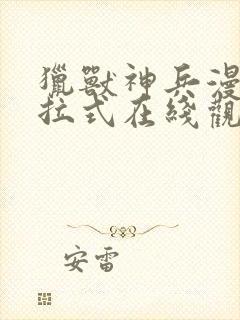 獵獸神兵漫
拉式在綫觀
安雷